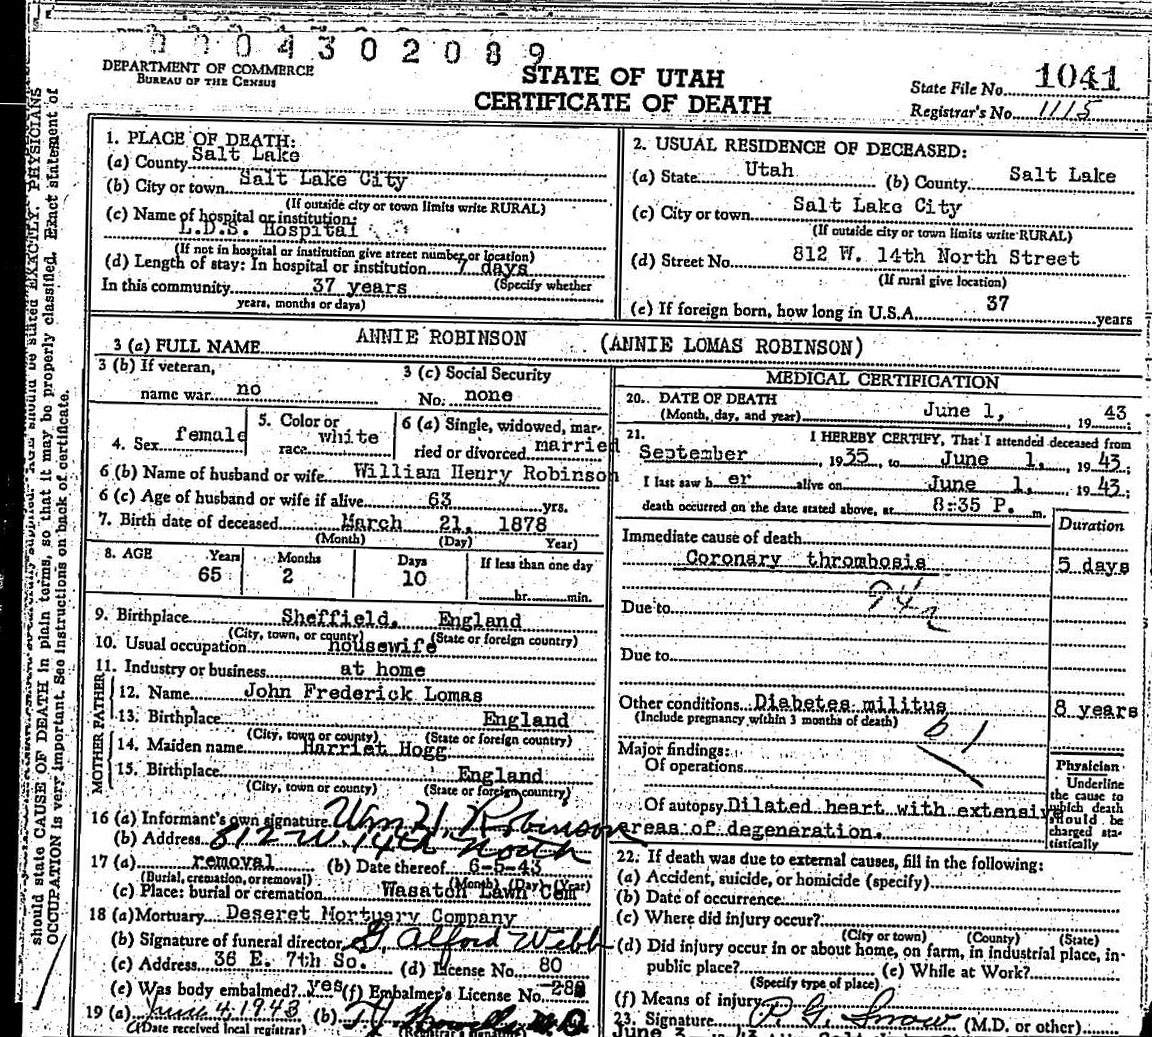 0004302089
DEPARTMENT OF COMMERCE
BUREAU OF THE CENSUS
STATE OF UTAH
CERTIFICATE OF DEATH
State File No. 1041
Registrar's No. 1115
should state CAUSE OF DEATH in plain terms, so that it may be properly classified. Exact statement of
OCCUPATION is very important. See instructions on back of certificate.
1. PLACE OF DEATH:
(a) County Salt Lake
(b) City or town Salt Lake City
(If outside city or town limits write RURAL)
(c) Name of hospital or institution:
L.D.S. Hospital
(If not in hospital or institution give street number or location)
(d) Length of stay: In hospital or institution 7 days
In this community 37 years (Specify whether
years, months or days)
2. USUAL RESIDENCE OF DECEASED:
(a) State Utah (b) County Salt Lake
(c) City or town Salt Lake City
(If outside city or town limits write RURAL)
(d) Street No. 812 W. 14th North Street
(If rural give location)
(e) If foreign born, how long in U.S.A. 37 years
3 (a) FULL NAME ANNIE ROBINSON (ANNIE LOMAS ROBINSON)
3 (b) If veteran, name war no
3 (c) Social Security No. none
4. Sex female
5. Color or race white
6 (a) Single, widowed, married or divorced married
6 (b) Name of husband or wife William Henry Robinson
6 (c) Age of husband or wife if alive 63 yrs.
7. Birth date of deceased March 21, 1878
(Month) (Day) Year)
8. AGE Years Months Days If less than one day
65 2 10 hr. min.
9. Birthplace Sheffield, England
(City, town, or county) (State or foreign country)
10. Usual occupation housewife
11. Industry or business at home
FATHER
12. Name John Frederick Lomas
13. Birthplace England
(City, town or county) (State or foreign country)
MOTHER
14. Maiden name Harriet Hogg
15. Birthplace England
(City, town or county) (State or foreign country)
16 (a) Informant's own signature Wm H. Robinson
(b) Address 812 W. 14th North
17 (a) removal (b) Date thereof 6-5-43
(Burial, cremation, or removal) (Month) (Day) (Year)
(c) Place: burial or cremation Wasatch Lawn Cem
18 (a) Mortuary Deseret Mortuary Company
(b) Signature of funeral director G Alford Webb
(c) Address 36 E. 7th So. (d) License No. 80
(e) Was body embalmed? yes (f) Embalmer's License No.
19 (a) June 4, 1943 (b) M.D.
(Date received local registrar) (Registrar's signature)
MEDICAL CERTIFICATION
20. DATE OF DEATH
(Month, day, and year) June 1, 1943
21. I HEREBY CERTIFY, That I attended deceased from
September, 1935, to June 1, 1943;
I last saw her alive on June 1, 1943;
death occurred on the date stated above, at 8:35 P. m.
Duration
Immediate cause of death
Coronary thrombosis 5 days
Due to
Due to
Other conditions Diabetes militus 8 years
(Include pregnancy within 3 months of death)
61
Major findings:
Of operations
Of autopsy Dilated heart with extensive
areas of degeneration.
Physician
Underline the cause to which death should be charged statistically
22. If death was due to external causes, fill in the following:
(a) Accident, suicide, or homicide (specify)
(b) Date of occurrence
(c) Where did injury occur?
(City or town) (County) (State)
(d) Did injury occur in or about home, on farm, in industrial place, in
public place? (e) While at Work?
(Specify type of place)
(f) Means of injury
23. Signature P G Snow (M.D. or other)